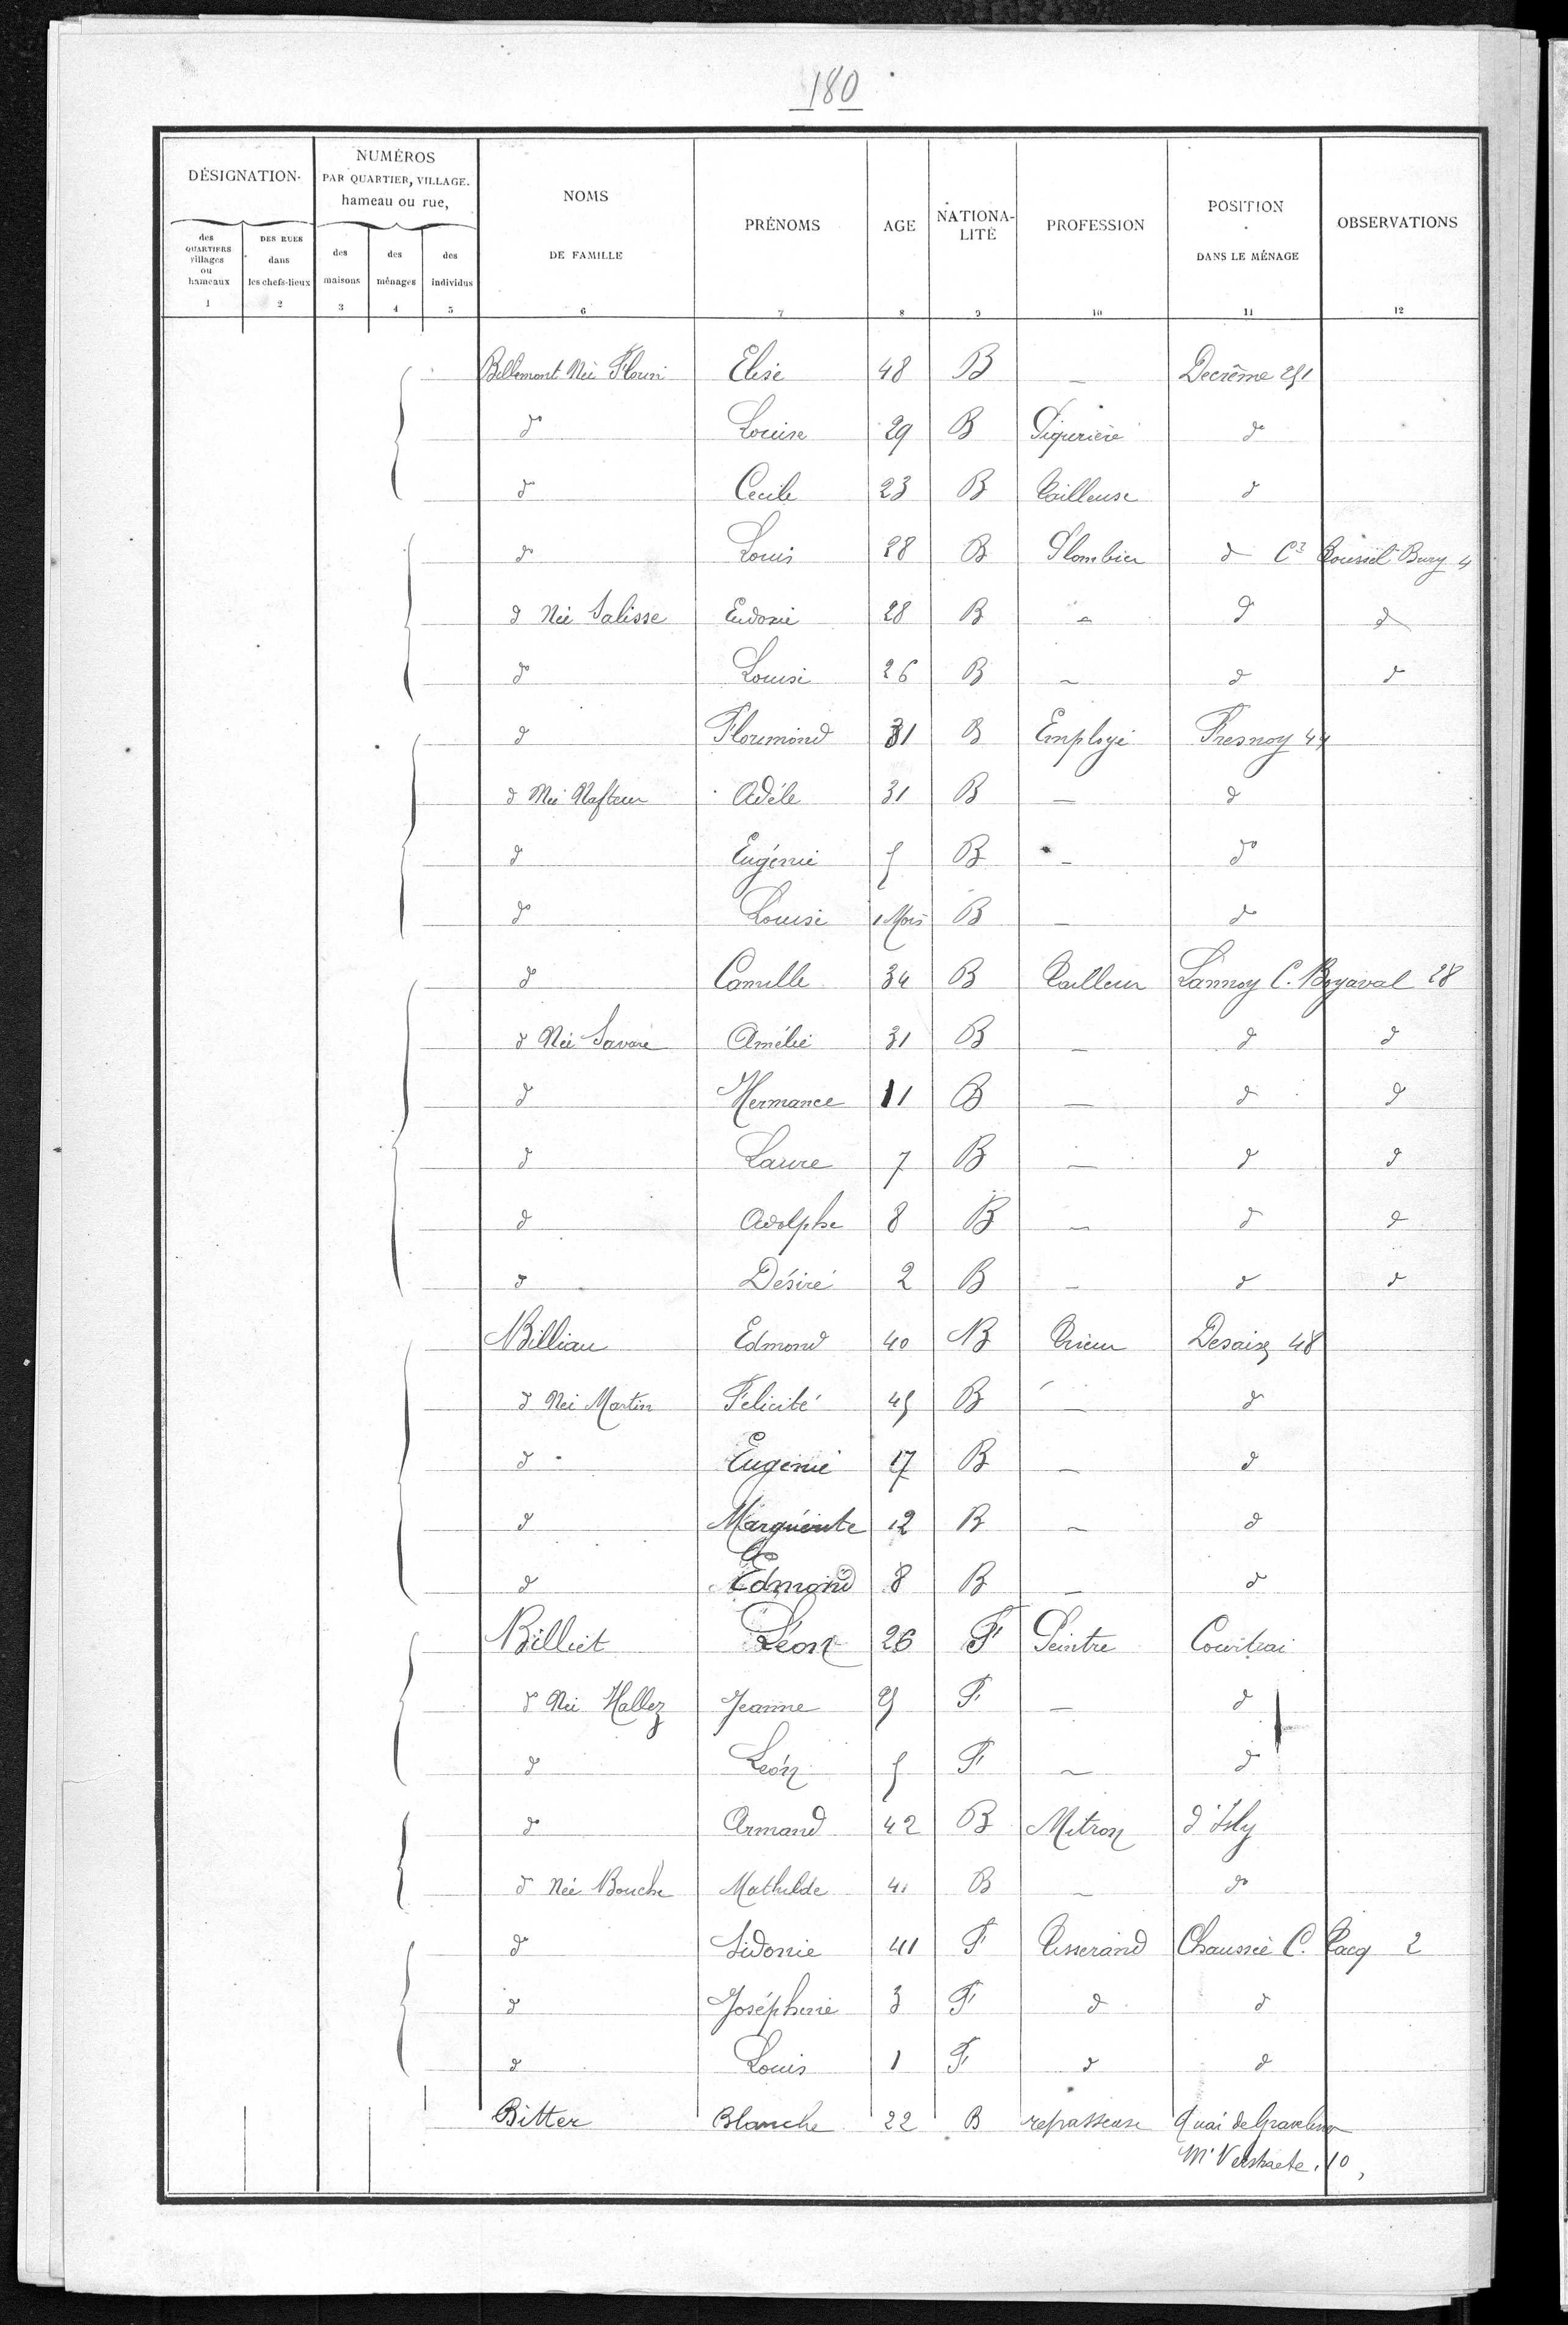 180
DÉSIGNATION. NUMÉROS PAR QUARTIER, VILLAGE. hameau ou rue, NOMS DE FAMILLE PRÉNOMS AGE NATIONA-LITÉ PROFESSION POSITION DANS LE MÉNAGE OBSERVATIONS
des QUARTIERS villages ou hameaux DES RUES dans les chefs-lieux des maisons des ménages des individus
1 2 3 4 5 6 7 8 9 10 11 12
Billemont Née Florin Elise 48 B — Decrême 251
do Louise 29 B Piqurière do
do Cecile 23 B Tailleuse d
do Louis 28 B Plombier d Cr Roussel Bury 4
d Née Salisse Eudoxie 28 B — d d
do Louise 26 B — d d
d Florimond 31 B Employé Fresnoy 44
d Née Adéle 31 B — d
d Eugénie 5 B — do
do Louise 1 Mois B — do
d Camille 34 B Tailleur Lannoy C. Boyaval 28
d Née Savare Amélie 31 B — d d
d Hermance 11 B — d d
d Laure 7 B — d d
d Adolphe 8 B — d d
d Désiré 2 B — d d
Billiau Edmond 40 B Trieur Desaix 48
d Née Martin Felicité 45 B — d
d Eugenie 17 B — d
d Marguerite 12 B — d
d Edmond 8 B — d
Billiet Léon 26 F Peintre Courtrai
d Née Hallez Jeanne 25 F — d
d Léon 5 F — d
do Armand 42 B Mitron d'Isly
d Née Bouche Mathilde 41 B — do
do Sidonie 41 F Tisserand Chaussée C. Tacq 2
d Joséphine 3 F d d
d Louis 1 F d d
Bitter Blanche 22 B repasseuse Quai de Gravelines
Mr Verstraete, 10,